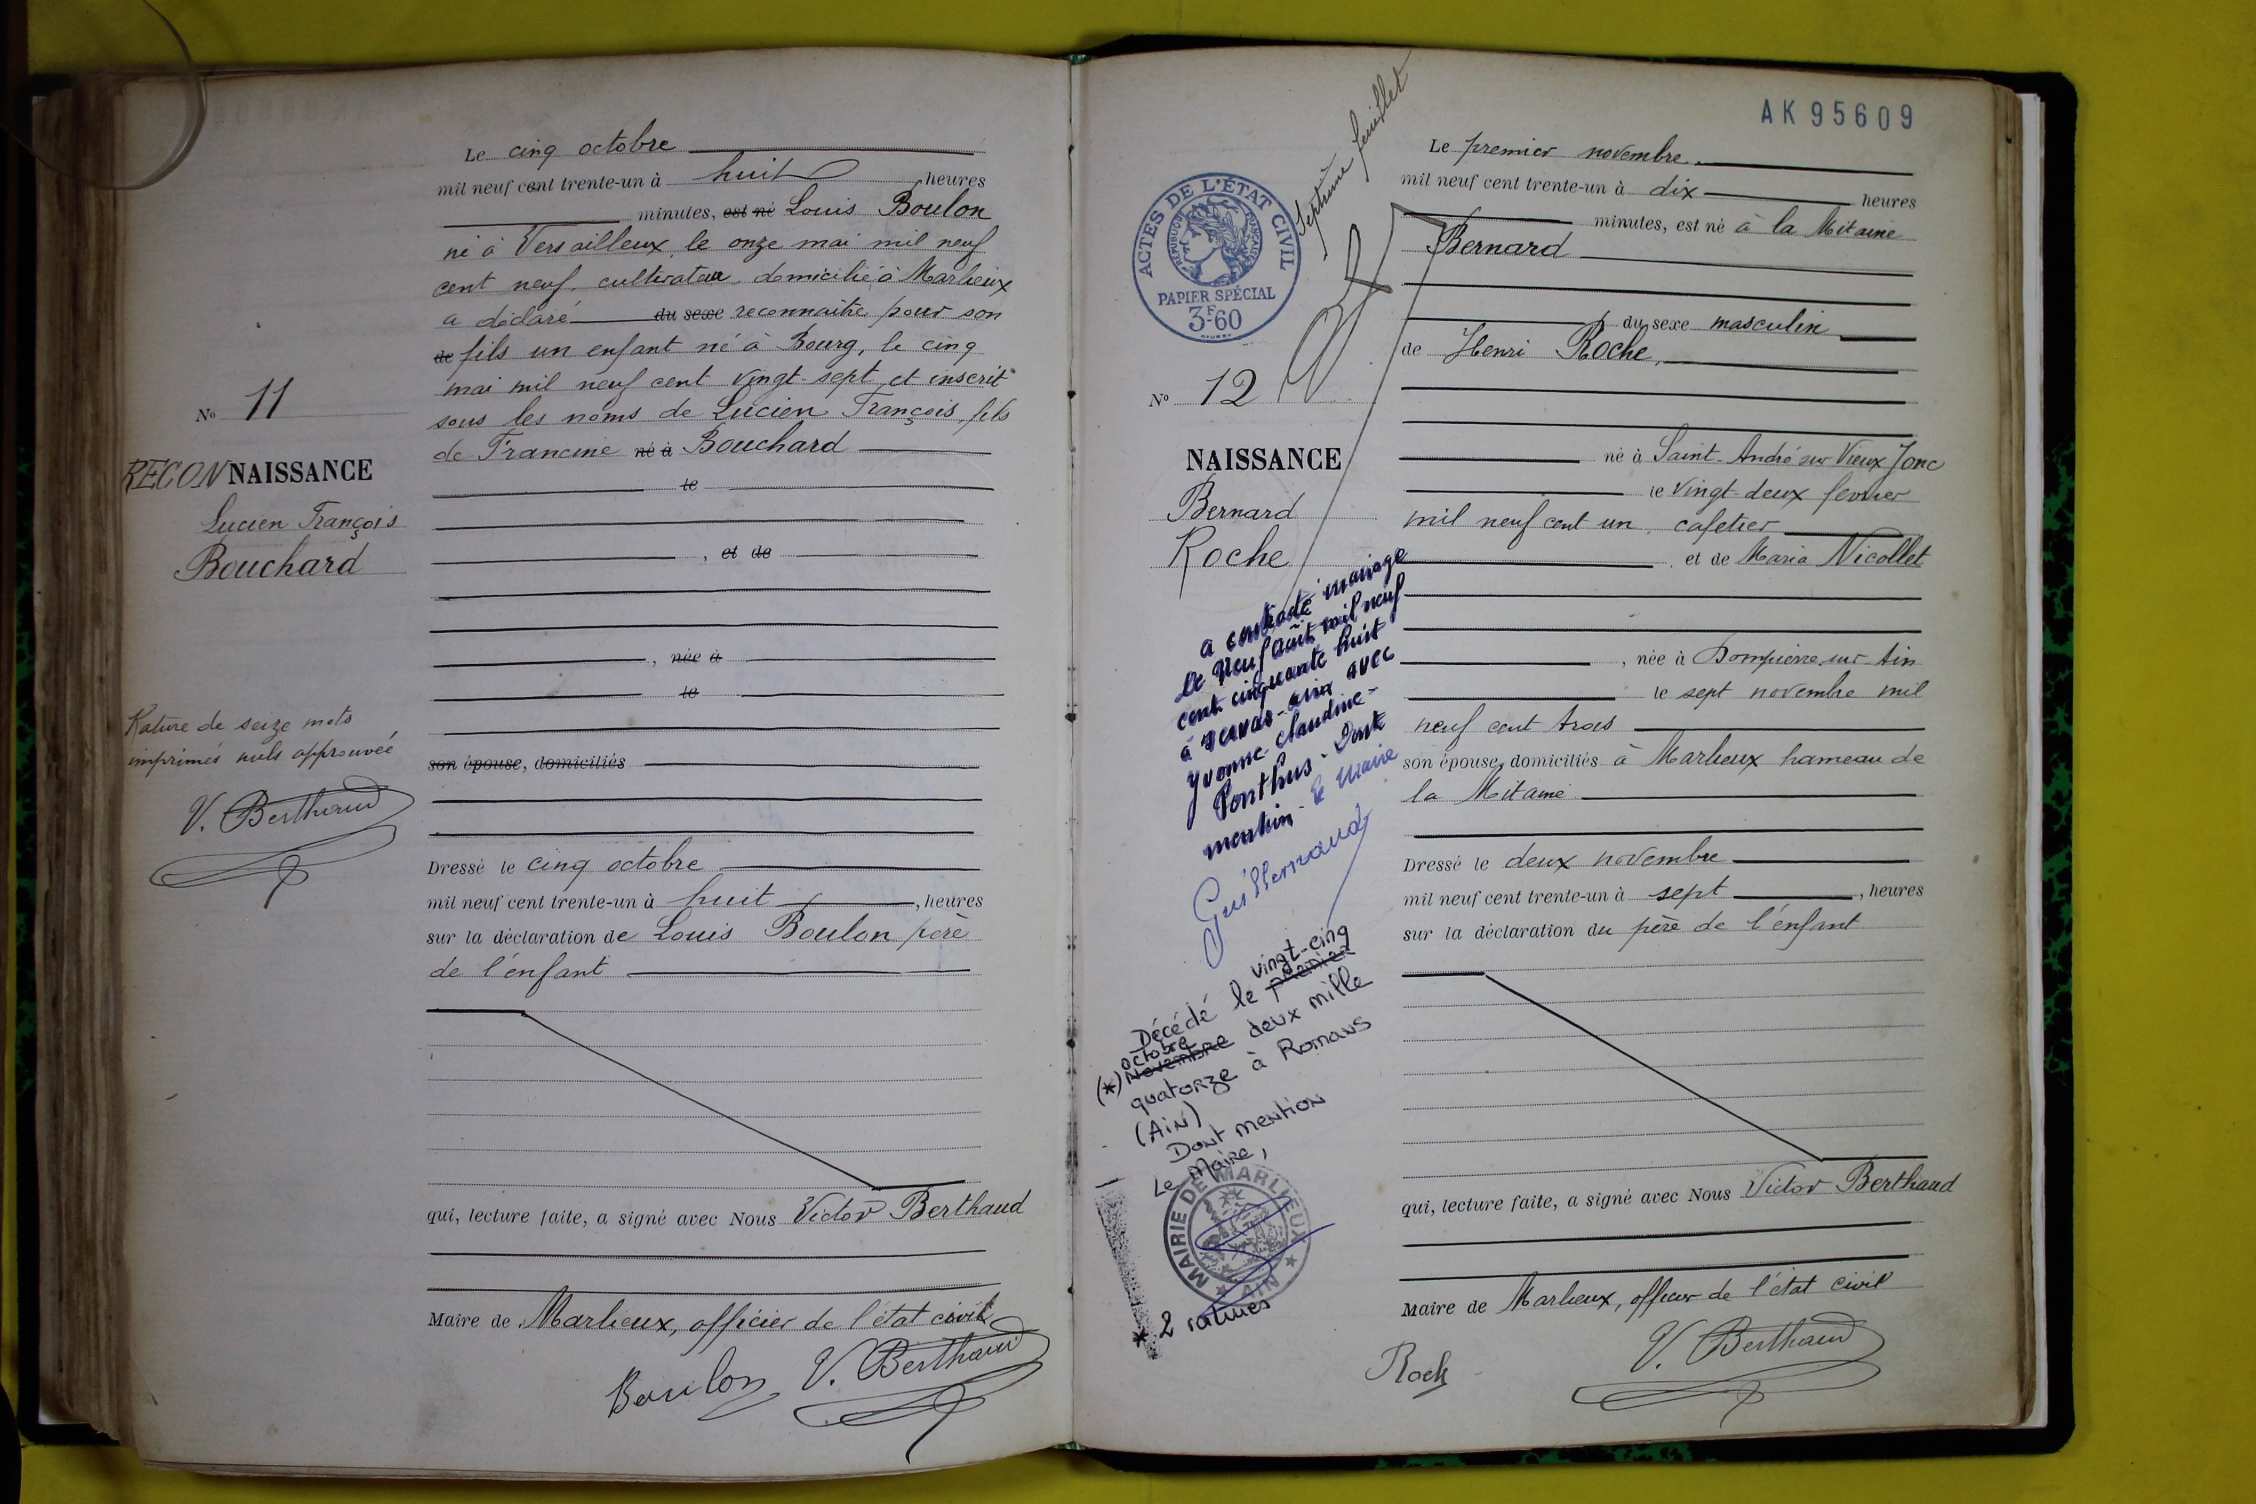 Le cinq octobre
mil neuf cent trente-un à huit heures
minutes, est né Louis Boulon
né à Versailleux, le onze mai mil neuf
cent neuf, cultivateur domicilié à Marlieux
a déclaré du sexe reconnaître pour son
de fils un enfant né à Bourg, le cinq
mai mil neuf cent vingt-sept et inscrit
sous les noms de Lucien François, fils
de Francine né à Bouchard
le
, et de
, née à
le
son épouse, domiciliés
Dressé le cinq octobre
mil neuf cent trente-un à huit, heures
sur la déclaration de Louis Boulon père
de l'enfant
qui, lecture faite, a signé avec Nous Victor Berthaud
Maire de Marlieux, officier de l'état civil
Boulon V. Berthaud
No 11
RECONNAISSANCE
Lucien François
Bouchard
Rature de seize mots
imprimés nuls approuvée
V. Berthaud
AK 95609
Septième feuillet
ACTES DE L'ÉTAT CIVIL
RÉPUBLIQUE FRANÇAISE
PAPIER SPÉCIAL
3F60
No 12
NAISSANCE
Bernard
Roche
a contracté mariage
le neuf août mil neuf
cent cinquante huit
à Servas-Ain avec
Yvonne-Claudine-
Ponthus - Dont
mention - le Maire
Guillermaud
vingt-cinq
Décédé le premier
octobre
(*) Novembre deux mille
quatorze à Romans
(Ain)
Dont mention
Le Maire,
MAIRIE DE MARLIEUX
AIN
* 2 ratures
Le premier novembre
mil neuf cent trente-un à dix heures
minutes, est né à la Mitaine
Bernard
du sexe masculin
de Henri Roche,
né à Saint-André sur Vieux Jonc
le vingt-deux février
mil neuf cent un, cafetier
et de Maria Nicollet
, née à Dompierre sur Ain
le sept novembre mil
neuf cent trois
son épouse, domiciliés à Marlieux hameau de
la Mitaine
Dressé le deux novembre
mil neuf cent trente-un à sept, heures
sur la déclaration du père de l'enfant
qui, lecture faite, a signé avec Nous Victor Berthaud
Maire de Marlieux, officier de l'état civil
Roch V. Berthaud